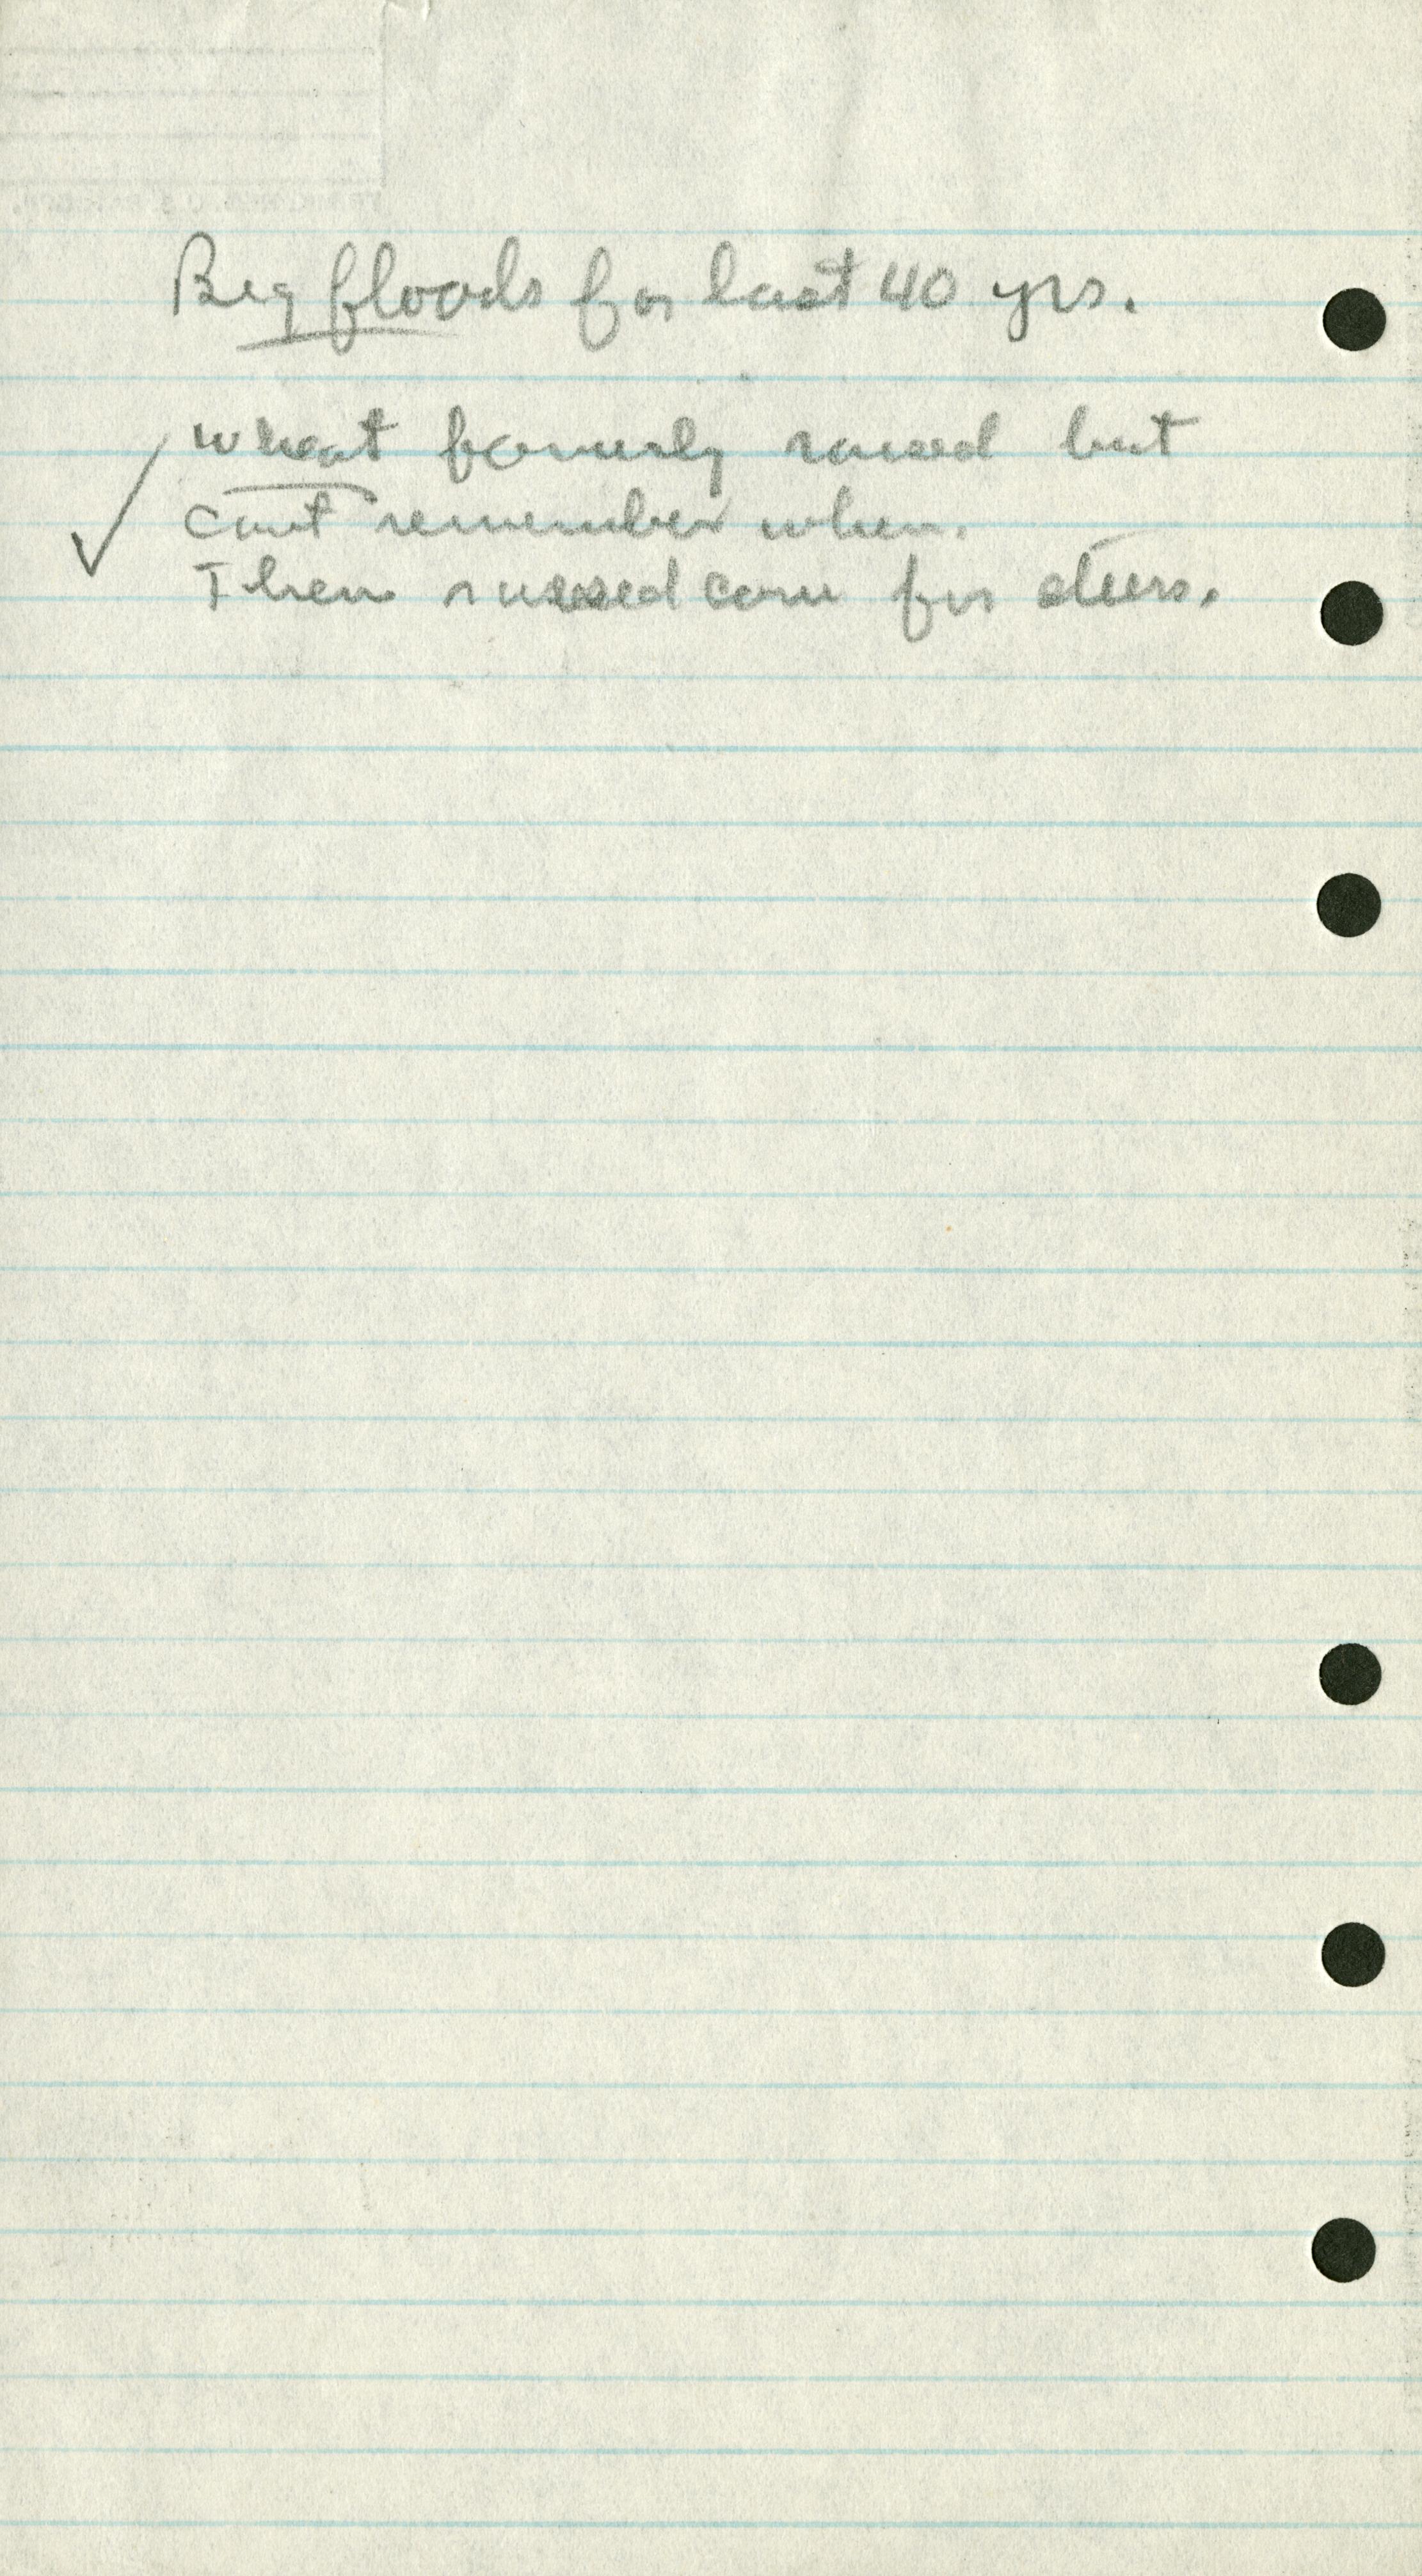 Big floods for last 40 yrs.
Wheat formerly raised but
cant remember when.
Then raised corn for steers.